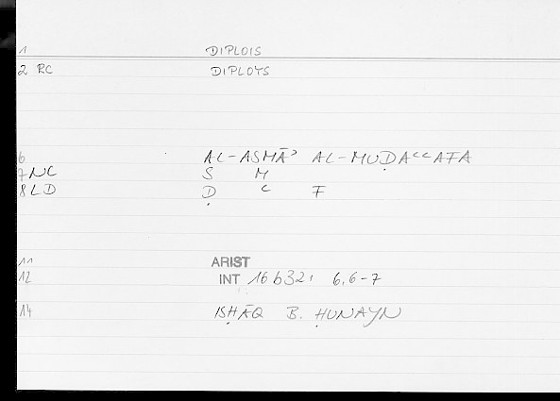 1 DIPLOIS
2 RC DIPLOYS
6 AL-ASMĀʾ AL-MUḌAʿʿAFA
7 NC S M
8 LD Ḍ ʿ F
11 ARIST
12 INT 16b32: 6,6-7
14 ISḤĀQ B. ḤUNAYN